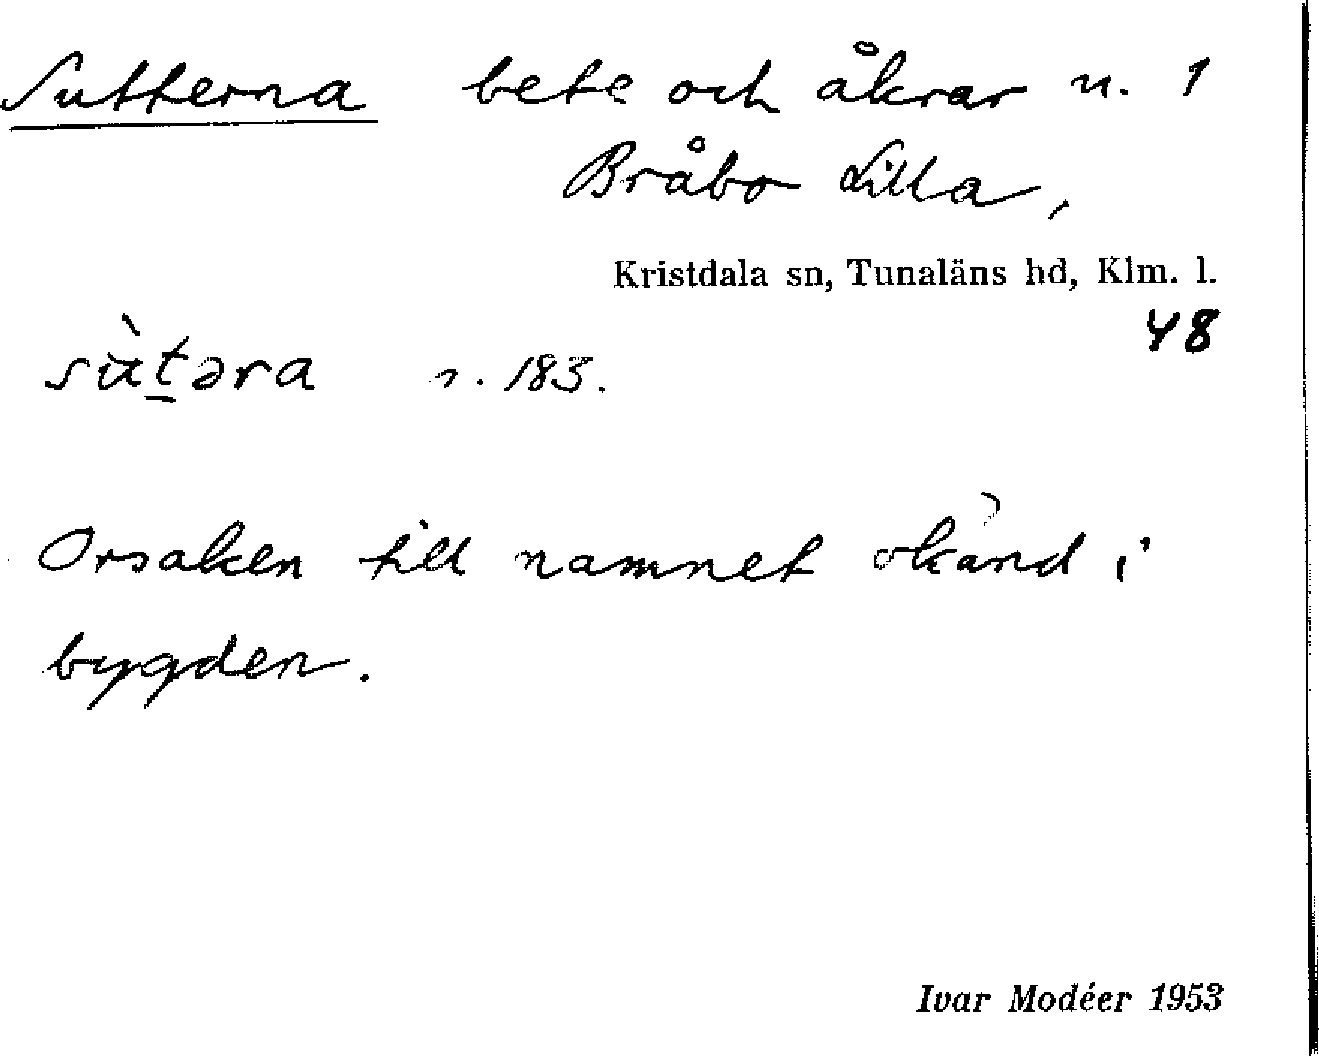 Sutterna bete och åkrar n. 1
Bråbo Lilla,
Kristdala sn, Tunaläns hd, Klm. l.
48
sùt̲əra s. 183.
Orsaken till namnet okänd i
bygden.
Ivar Modéer 1953